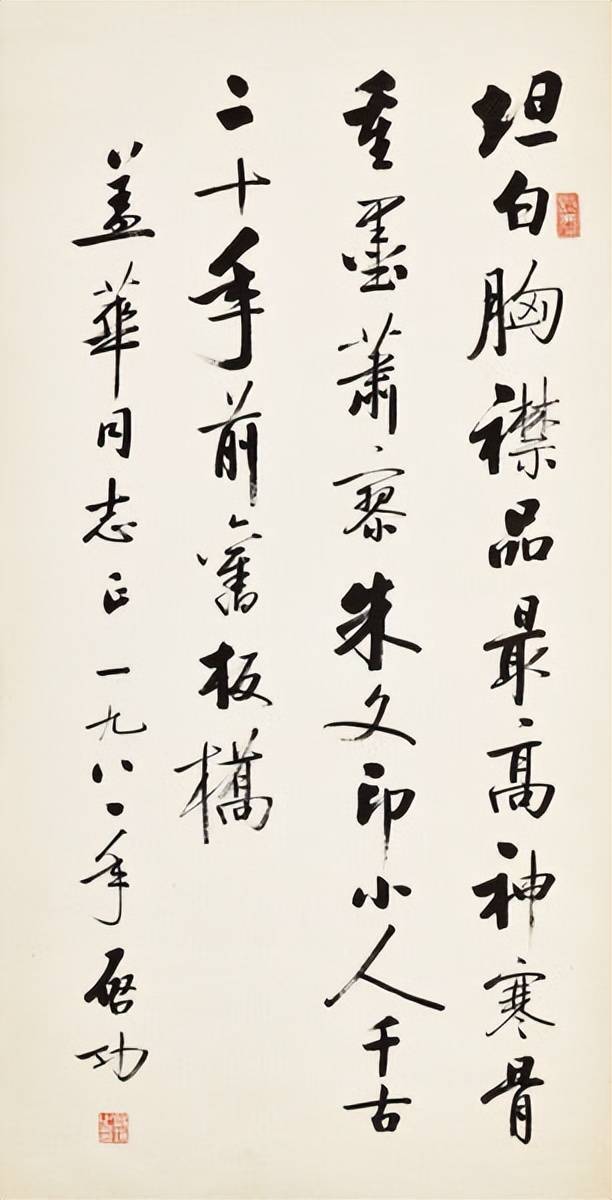 坦白胸襟品最高神寒骨
重墨蕭寥朱文印小人千古
二十年前舊板橋
盖華同志正 一九八一年 啓功